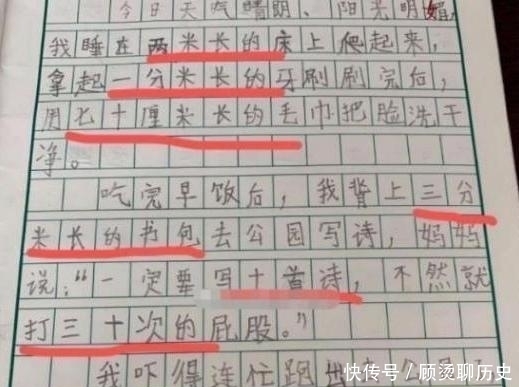 今日天气晴朗、阳光明媚,
我睡在两米长的床上爬起来,
拿起一分米长的牙刷刷完后,
用七十厘米长的毛巾把脸洗干
净。
吃完早饭后,我背上三分
米长的书包去公园写诗,妈妈
说:“一定要写十首诗,不然就
打三十次的屁股。”
我吓得连忙跑出
快传号/顾烫聊历史